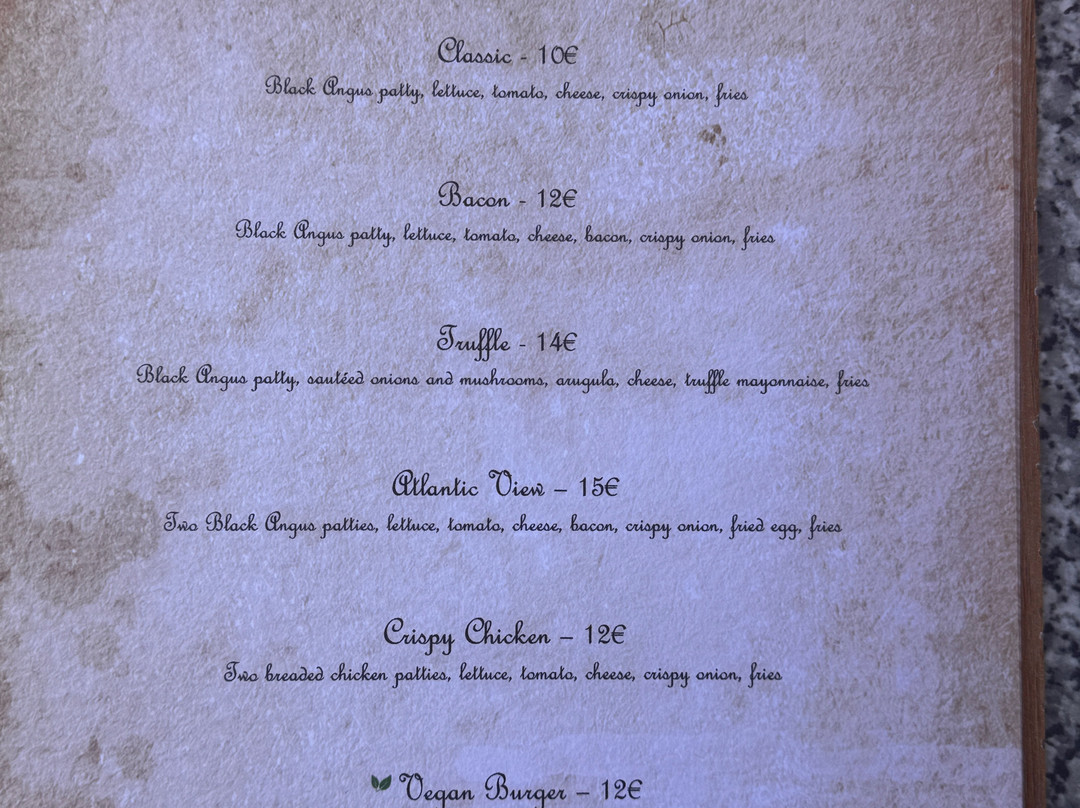 Classic - 10€
Black Angus patty, lettuce, tomato, cheese, crispy onion, fries
Bacon - 12€
Black Angus patty, lettuce, tomato, cheese, bacon, crispy onion, fries
Truffle - 14€
Black Angus patty, sautéed onions and mushrooms, arugula, cheese, truffle mayonnaise, fries
Atlantic View – 15€
Two Black Angus patties, lettuce, tomato, cheese, bacon, crispy onion, fried egg, fries
Crispy Chicken – 12€
Two breaded chicken patties, lettuce, tomato, cheese, crispy onion, fries
Vegan Burger – 12€